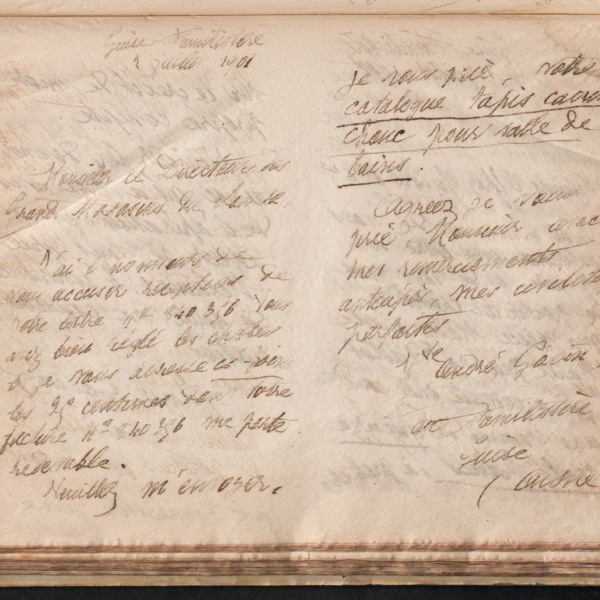 Guise Familistère
1 juillet 1901
Monsieur le Directeur des
Grands Magasins du Louvre,
J'ai l'honneur de
vous accuser réception de
votre lettre nº 240 376. Vous
avez bien réglé les
je vous adresse ci-join
les 25 centimes dont votre
facture nº 240 376 me porte
redevable.
Veuillez m'envoyer,
je vous prie, votre
catalogue tapis caout
chouc pour salle de
bains.
Agréez je vous
prie Monsieur, avec
mes remerciements
anticipés, mes civilités
parfaites
Vve André Godin
au Familistère
Guise
(Aisne